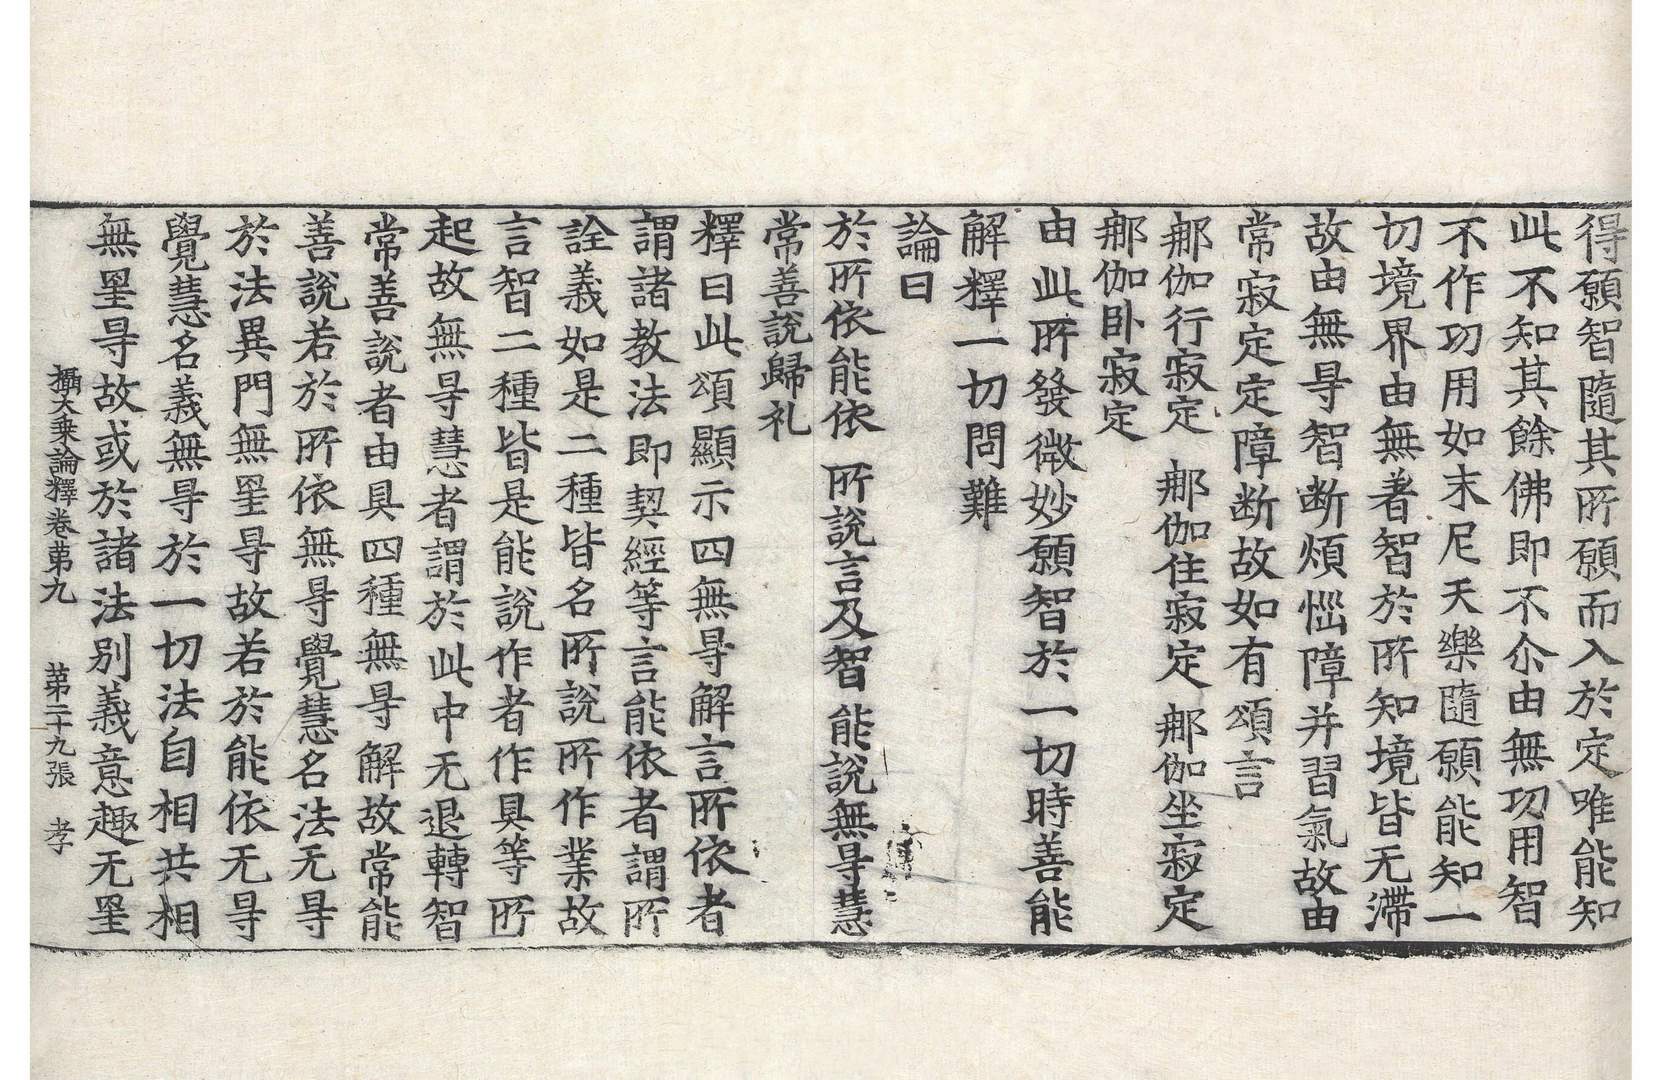 得願智隨其所願而入於定唯能知
此不知其餘佛即不尒由無功用智
不作功用如末尼天樂隨願能知一
切境界由無著智於所知境皆无滯
故由無㝵智断煩惱障并習氣故由
常寂定定障断故如有頌言
那伽行寂定 那伽住寂定 那伽坐寂定
那伽卧寂定
由此所發微妙願智於一切時善能
解釋一切問難
論曰
於所依能依 所說言及智 能說無㝵慧
常善說歸礼
釋曰此頌顯示四無㝵解言所依者
謂諸教法即契經等言能依者謂所
詮義如是二種皆名所說所作業故
言智二種皆是能說作者作具等所
起故無㝵慧者謂於此中无退轉智
常善說者由具四種無㝵解故常能
善說若於所依無㝵覺慧名法无㝵
於法異門無罣㝵故若於能依无㝵
覺慧名義無㝵於一切法自相共相
無罣㝵故或於諸法別義意趣无罣
攝大乘論釋卷苐九 苐二十九張 孝